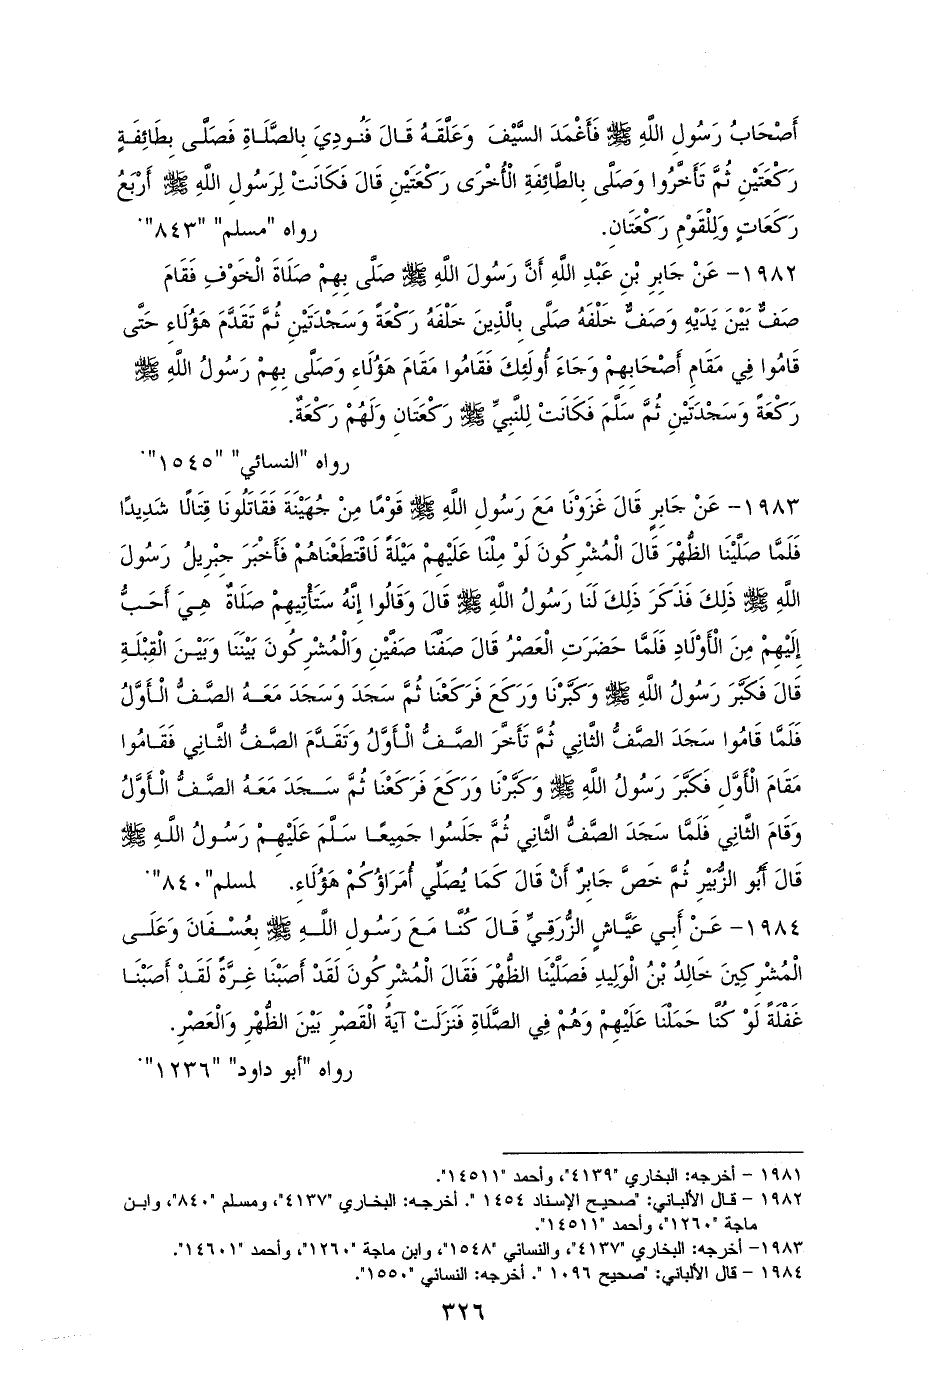 أَصْحَابُ رَسُولِ اللَّهِ ﷺ فَأَغْمَدَ السَّيْفَ وَعَلَّقَهُ قَالَ فَنُودِيَ بِالصَّلَاةِ فَصَلَّى بِطَائِفَةٍ
رَكْعَتَيْنِ ثُمَّ تَأَخَّرُوا وَصَلَّى بِالطَّائِفَةِ الْأُخْرَى رَكْعَتَيْنِ قَالَ فَكَانَتْ لِرَسُولِ اللَّهِ ﷺ أَرْبَعُ
رَكَعَاتٍ وَلِلْقَوْمِ رَكْعَتَانِ. رواه "مسلم" "٨٤٣".
١٩٨٢- عَنْ جَابِرِ بْنِ عَبْدِ اللَّهِ أَنَّ رَسُولَ اللَّهِ ﷺ صَلَّى بِهِمْ صَلَاةَ الْخَوْفِ فَقَامَ
صَفٌّ بَيْنَ يَدَيْهِ وَصَفٌّ خَلْفَهُ صَلَّى بِالَّذِينَ خَلْفَهُ رَكْعَةً وَسَجْدَتَيْنِ ثُمَّ تَقَدَّمَ هَؤُلَاءِ حَتَّى
قَامُوا فِي مَقَامِ أَصْحَابِهِمْ وَجَاءَ أُولَئِكَ فَقَامُوا مَقَامَ هَؤُلَاءِ وَصَلَّى بِهِمْ رَسُولُ اللَّهِ ﷺ
رَكْعَةً وَسَجْدَتَيْنِ ثُمَّ سَلَّمَ فَكَانَتْ لِلنَّبِيِّ ﷺ رَكْعَتَانِ وَلَهُمْ رَكْعَةٌ.
رواه "النسائي" "١٥٤٥".
١٩٨٣- عَنْ جَابِرٍ قَالَ غَزَوْنَا مَعَ رَسُولِ اللَّهِ ﷺ قَوْمًا مِنْ جُهَيْنَةَ فَقَاتَلُونَا قِتَالًا شَدِيدًا
فَلَمَّا صَلَّيْنَا الظُّهْرَ قَالَ الْمُشْرِكُونَ لَوْ مِلْنَا عَلَيْهِمْ مَيْلَةً لَاقْتَطَعْنَاهُمْ فَأَخْبَرَ جِبْرِيلُ رَسُولَ
اللَّهِ ﷺ ذَلِكَ فَذَكَرَ ذَلِكَ لَنَا رَسُولُ اللَّهِ ﷺ قَالَ وَقَالُوا إِنَّهُ سَتَأْتِيهِمْ صَلَاةٌ هِيَ أَحَبُّ
إِلَيْهِمْ مِنَ الْأَوْلَادِ فَلَمَّا حَضَرَتِ الْعَصْرُ قَالَ صَفَّنَا صَفَّيْنِ وَالْمُشْرِكُونَ بَيْنَنَا وَبَيْنَ الْقِبْلَةِ
قَالَ فَكَبَّرَ رَسُولُ اللَّهِ ﷺ وَكَبَّرْنَا وَرَكَعَ فَرَكَعْنَا ثُمَّ سَجَدَ وَسَجَدَ مَعَهُ الصَّفُّ الْأَوَّلُ
فَلَمَّا قَامُوا سَجَدَ الصَّفُّ الثَّانِي ثُمَّ تَأَخَّرَ الصَّفُّ الْأَوَّلُ وَتَقَدَّمَ الصَّفُّ الثَّانِي فَقَامُوا
مَقَامَ الْأَوَّلِ فَكَبَّرَ رَسُولُ اللَّهِ ﷺ وَكَبَّرْنَا وَرَكَعَ فَرَكَعْنَا ثُمَّ سَجَدَ مَعَهُ الصَّفُّ الْأَوَّلُ
وَقَامَ الثَّانِي فَلَمَّا سَجَدَ الصَّفُّ الثَّانِي ثُمَّ جَلَسُوا جَمِيعًا سَلَّمَ عَلَيْهِمْ رَسُولُ اللَّهِ ﷺ
قَالَ أَبُو الزُّبَيْرِ ثُمَّ خَصَّ جَابِرٌ أَنْ قَالَ كَمَا يُصَلِّي أُمَرَاؤُكُمْ هَؤُلَاءِ. لمسلم"٨٤٠".
١٩٨٤- عَنْ أَبِي عَيَّاشٍ الزُّرَقِيِّ قَالَ كُنَّا مَعَ رَسُولِ اللَّهِ ﷺ بِعُسْفَانَ وَعَلَى
الْمُشْرِكِينَ خَالِدُ بْنُ الْوَلِيدِ فَصَلَّيْنَا الظُّهْرَ فَقَالَ الْمُشْرِكُونَ لَقَدْ أَصَبْنَا غِرَّةً لَقَدْ أَصَبْنَا
غَفْلَةً لَوْ كُنَّا حَمَلْنَا عَلَيْهِمْ وَهُمْ فِي الصَّلَاةِ فَنَزَلَتْ آيَةُ الْقَصْرِ بَيْنَ الظُّهْرِ وَالْعَصْرِ.
رواه "أبو داود" "١٢٣٦".
١٩٨١ - أخرجه: البخاري "٤١٣٩"، وأحمد "١٤٥١١".
١٩٨٢ - قال الألباني: "صحيح الإسناد ١٤٥٤ ". أخرجه: البخاري "٤١٣٧"، ومسلم "٨٤٠"، وابن
ماجة "١٢٦٠"، وأحمد "١٤٥١١".
١٩٨٣- أخرجه: البخاري "٤١٣٧"، والنسائي "١٥٤٨"، وابن ماجة "١٢٦٠"، وأحمد "١٤٦٠١".
١٩٨٤ - قال الألباني: "صحيح ١٠٩٦ ". أخرجه: النسائي "١٥٥٠".
٣٢٦